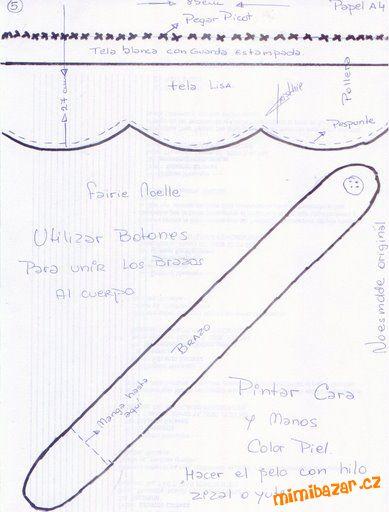 5
85cm
Papel A4
Pegar Picot
Tela blanca con Guarda Estampada
27 cm
tela Lisa.
Pollera
Pespunte
Fairie Noelle
Utilizar Botones
Para unir Los Brazos
Al cuerpo
Brazo
Manga hasta
aquí
Noesmolde original
Pintar Cara
y Manos
Color Piel.
Hacer el pelo con hilo
zizal o
mimibazar.cz